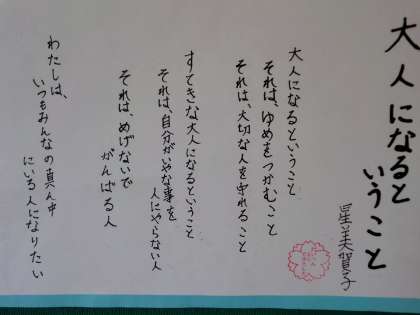 大人になると
いうこと
星美賀子
大人になるということ
それは、ゆめをつかむこと
それは、大切な人を守れること
すてきな大人になるということ
それは、自分がいやな事を
人にやらない人
それは、めげないで
がんばる人
わたしは、
いつもみんなの真ん中
にいる人になりたい